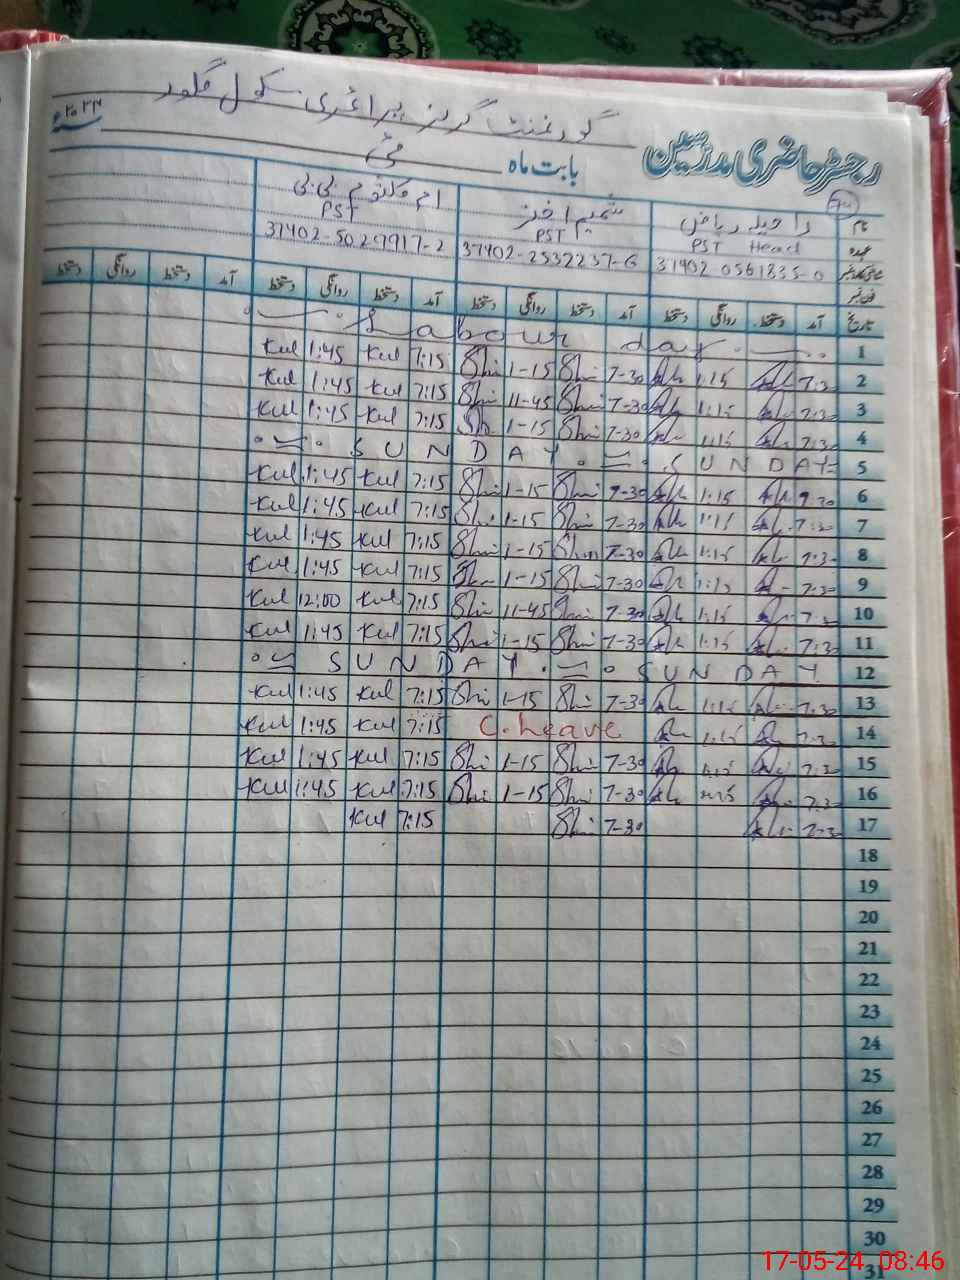 گورنمنٹ گرلز پرائمری سکول
رجسٹر حاضری مدرسین
بابت ماہ مئی ۲۰۲۴ء
نام راحیلہ ریاض شمیم اختر
عہدہ PST Head PST PST
37402-0561835-0 37402-2532237-6 37402-5029917-2
فون نمبر
تاریخ آمد دستخط روانگی دستخط آمد دستخط روانگی دستخط آمد دستخط روانگی دستخط آمد دستخط روانگی دستخط
1 Labour day
Kul 1:45 Kul 7:15 Shi 1-15 Shi 7-30 1:15 7:30 2
Kul 1:45 Kul 7:15 Shi 11-45 Shi 7-30 1:15 7:30 3
Kul 1:45 Kul 7:15 Sh 1-15 Shi 7-30 1:15 7:30 4
SUNDAY SUNDAY 5
Kul 1:45 Kul 7:15 Shi 1-15 Shi 7-30 1:15 7:30 6
Kul 1:45 Kul 7:15 Shi 1-15 Shi 7-30 1:15 7:30 7
Kul 1:45 Kul 7:15 Shi 1-15 Shi 7-30 1:15 7:30 8
Kul 1:45 Kul 7:15 Shi 1-15 Shi 7-30 1:15 7:30 9
Kul 12:00 Kul 7:15 Shi 11-45 Shi 7-30 1:15 7:30 10
Kul 1:45 Kul 7:15 Shi 1-15 Shi 7-30 1:15 7:30 11
SUNDAY SUNDAY 12
Kul 1:45 Kul 7:15 Shi 1-15 Shi 7-30 1:15 7:30 13
Kul 1:45 Kul 7:15 C. Leave 1:15 7:30 14
Kul 1:45 Kul 7:15 Shi 1-15 Shi 7-30 1:15 7:30 15
Kul 1:45 Kul 7:15 Shi 1-15 Shi 7-30 7:30 16
Kul 7:15 Shi 7-30 7:30 17
18
19
20
21
22
23
24
25
26
27
28
29
30
31
17-05-24, 08:46